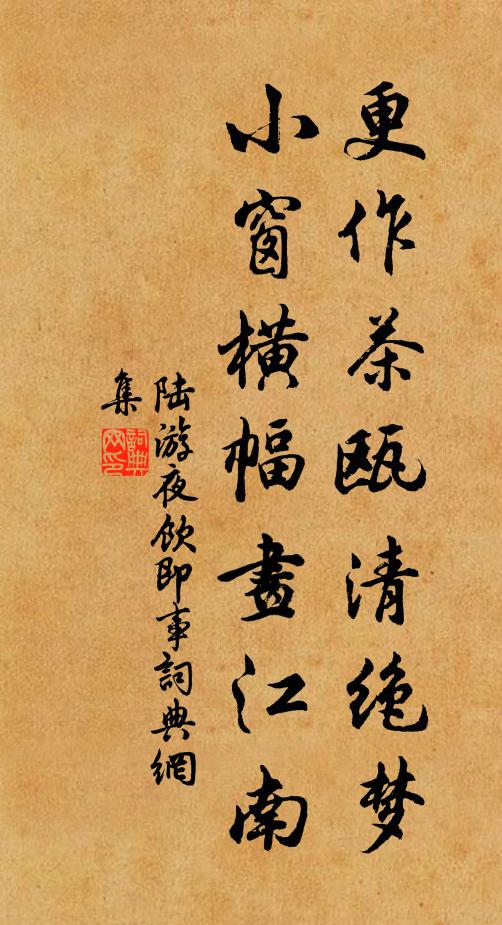 更作茶瓯清绝梦
小窗横幅畫江南
陆游夜飲即事詞典網
集
詞典
网印